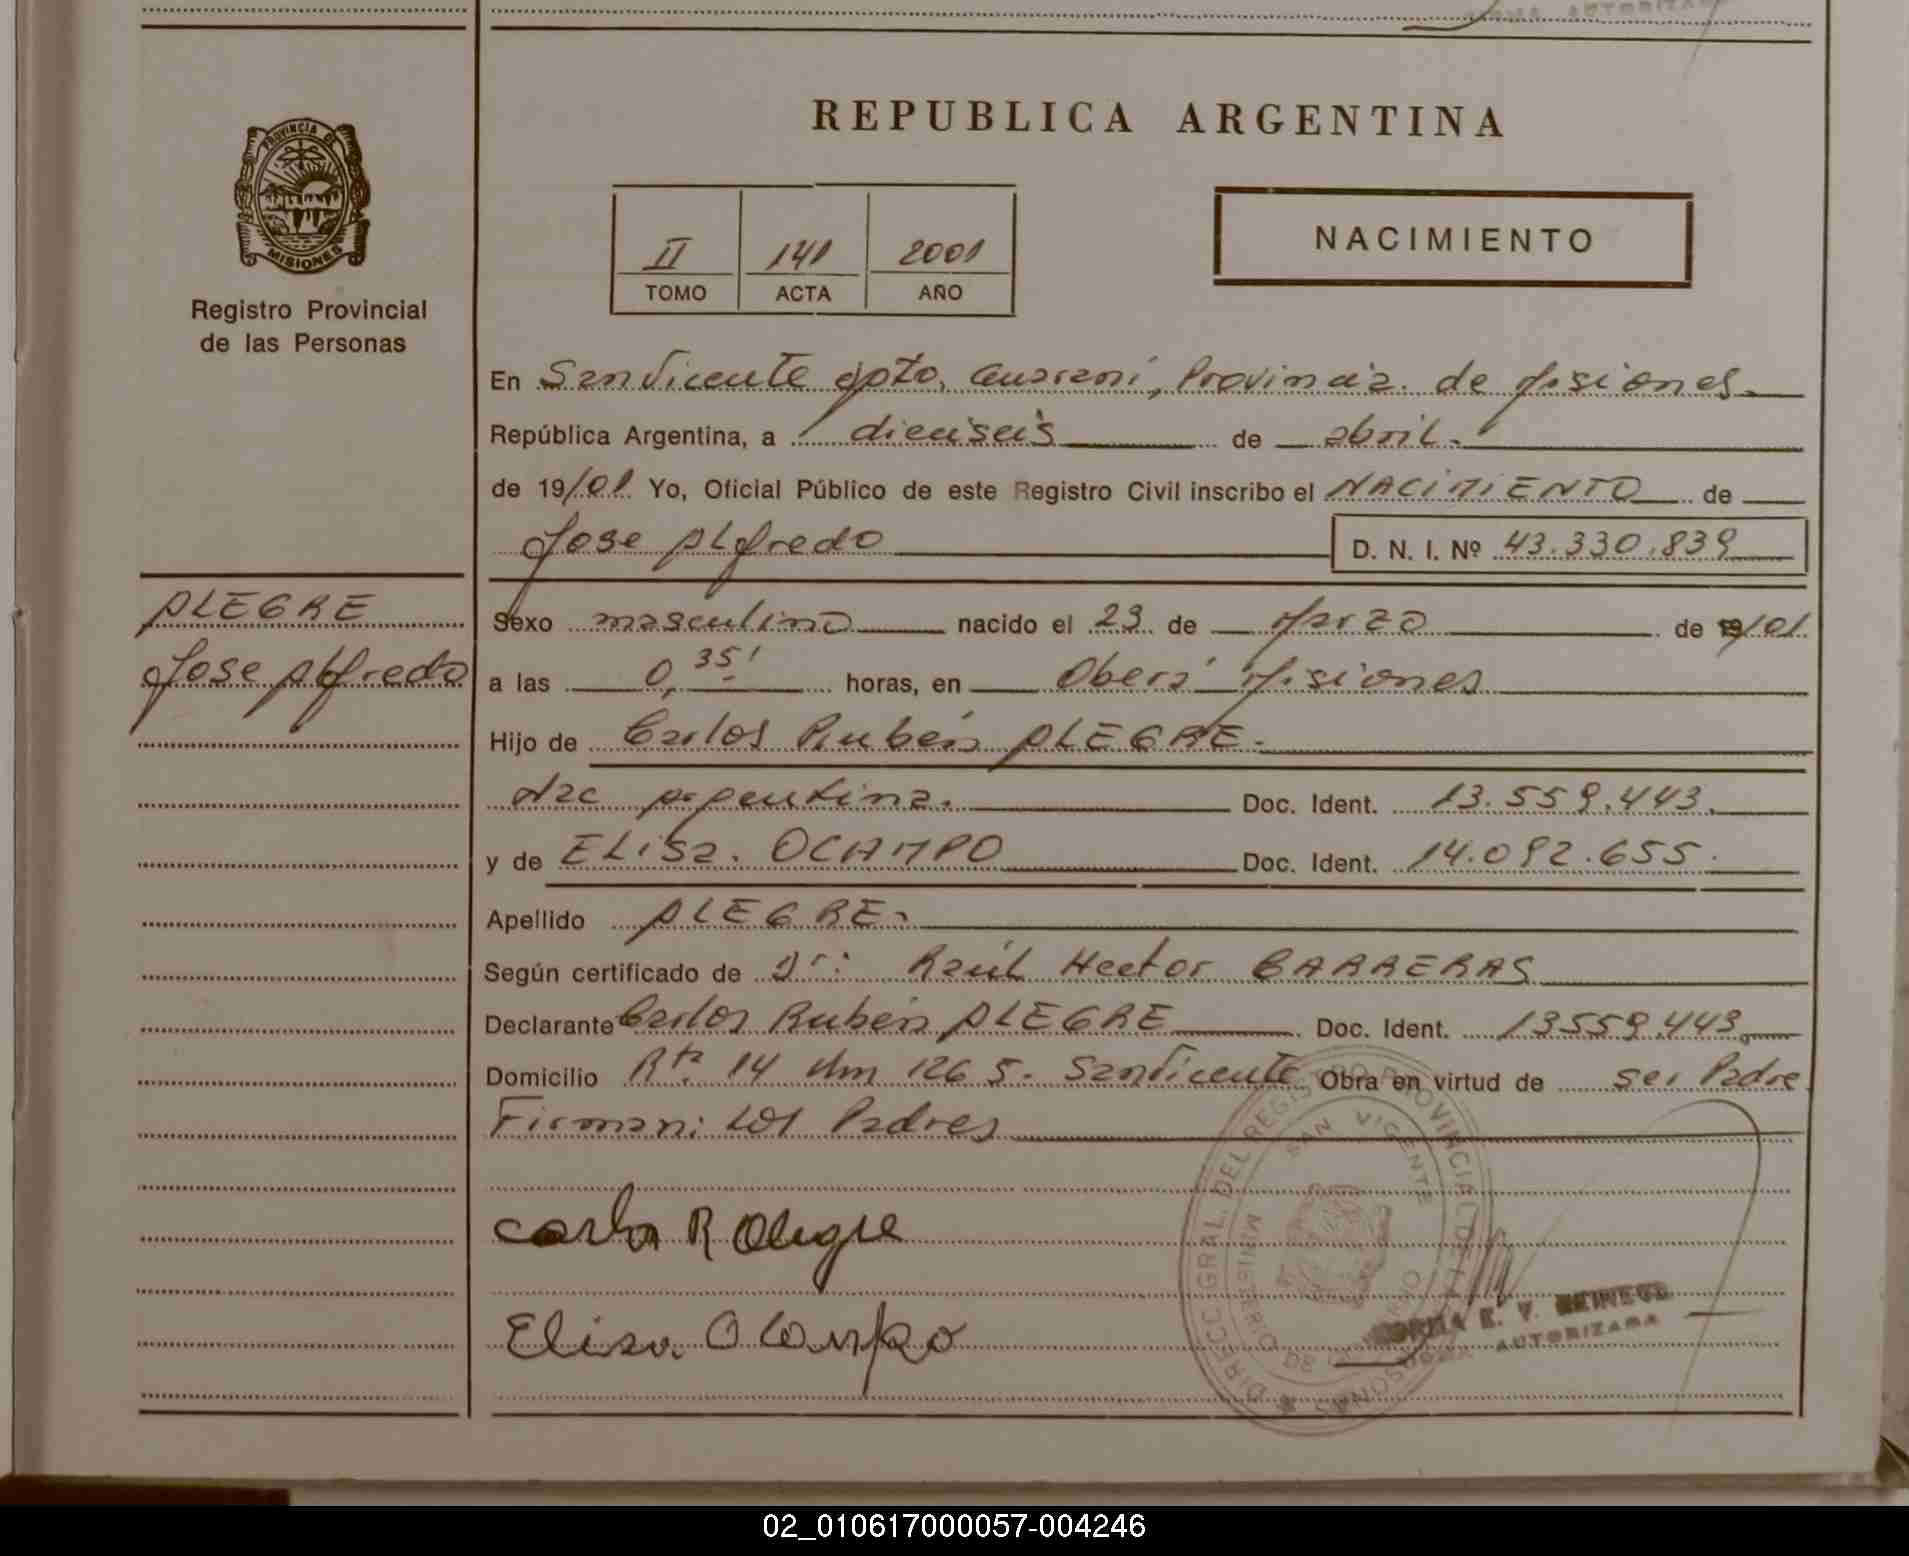 REPUBLICA ARGENTINA
PROVINCIA DE MISIONES
Registro Provincial
de las Personas
II 141 2001
TOMO ACTA AÑO
NACIMIENTO
En San Vicente Dpto. Guaraní, Provincia de Misiones.
República Argentina, a dieciseis de abril.
de 19/01. Yo, Oficial Público de este Registro Civil inscribo el NACIMIENTO de
Jose Alfredo D. N. I. Nº 43.330.839
ALEGRE
Jose Alfredo
Sexo masculino nacido el 23 de Marzo de 19/01.
a las 0,35' horas, en Oberá Misiones
Hijo de Carlos Rubén ALEGRE.
Nac argentina. Doc. Ident. 13.559.443.
y de Elisa. OCAMPO Doc. Ident. 14.092.655.
Apellido ALEGRE.
Según certificado de Dr: Raúl Hector CARRERAS
Declarante Carlos Rubén ALEGRE Doc. Ident. 13559.443.
Domicilio Rta. 14 Km 1265. San Vicente Obra en virtud de ser Padre.
Firman: los Padres
Carlos R Alegre
Elisa Ocampo
DIRECC. GRAL. DEL REGISTRO PROVINCIAL DE LAS PERSONAS
SAN VICENTE
MINISTERIO DE GOBIERNO
E. V.
FIRMA AUTORIZADA
02_010617000057-004246